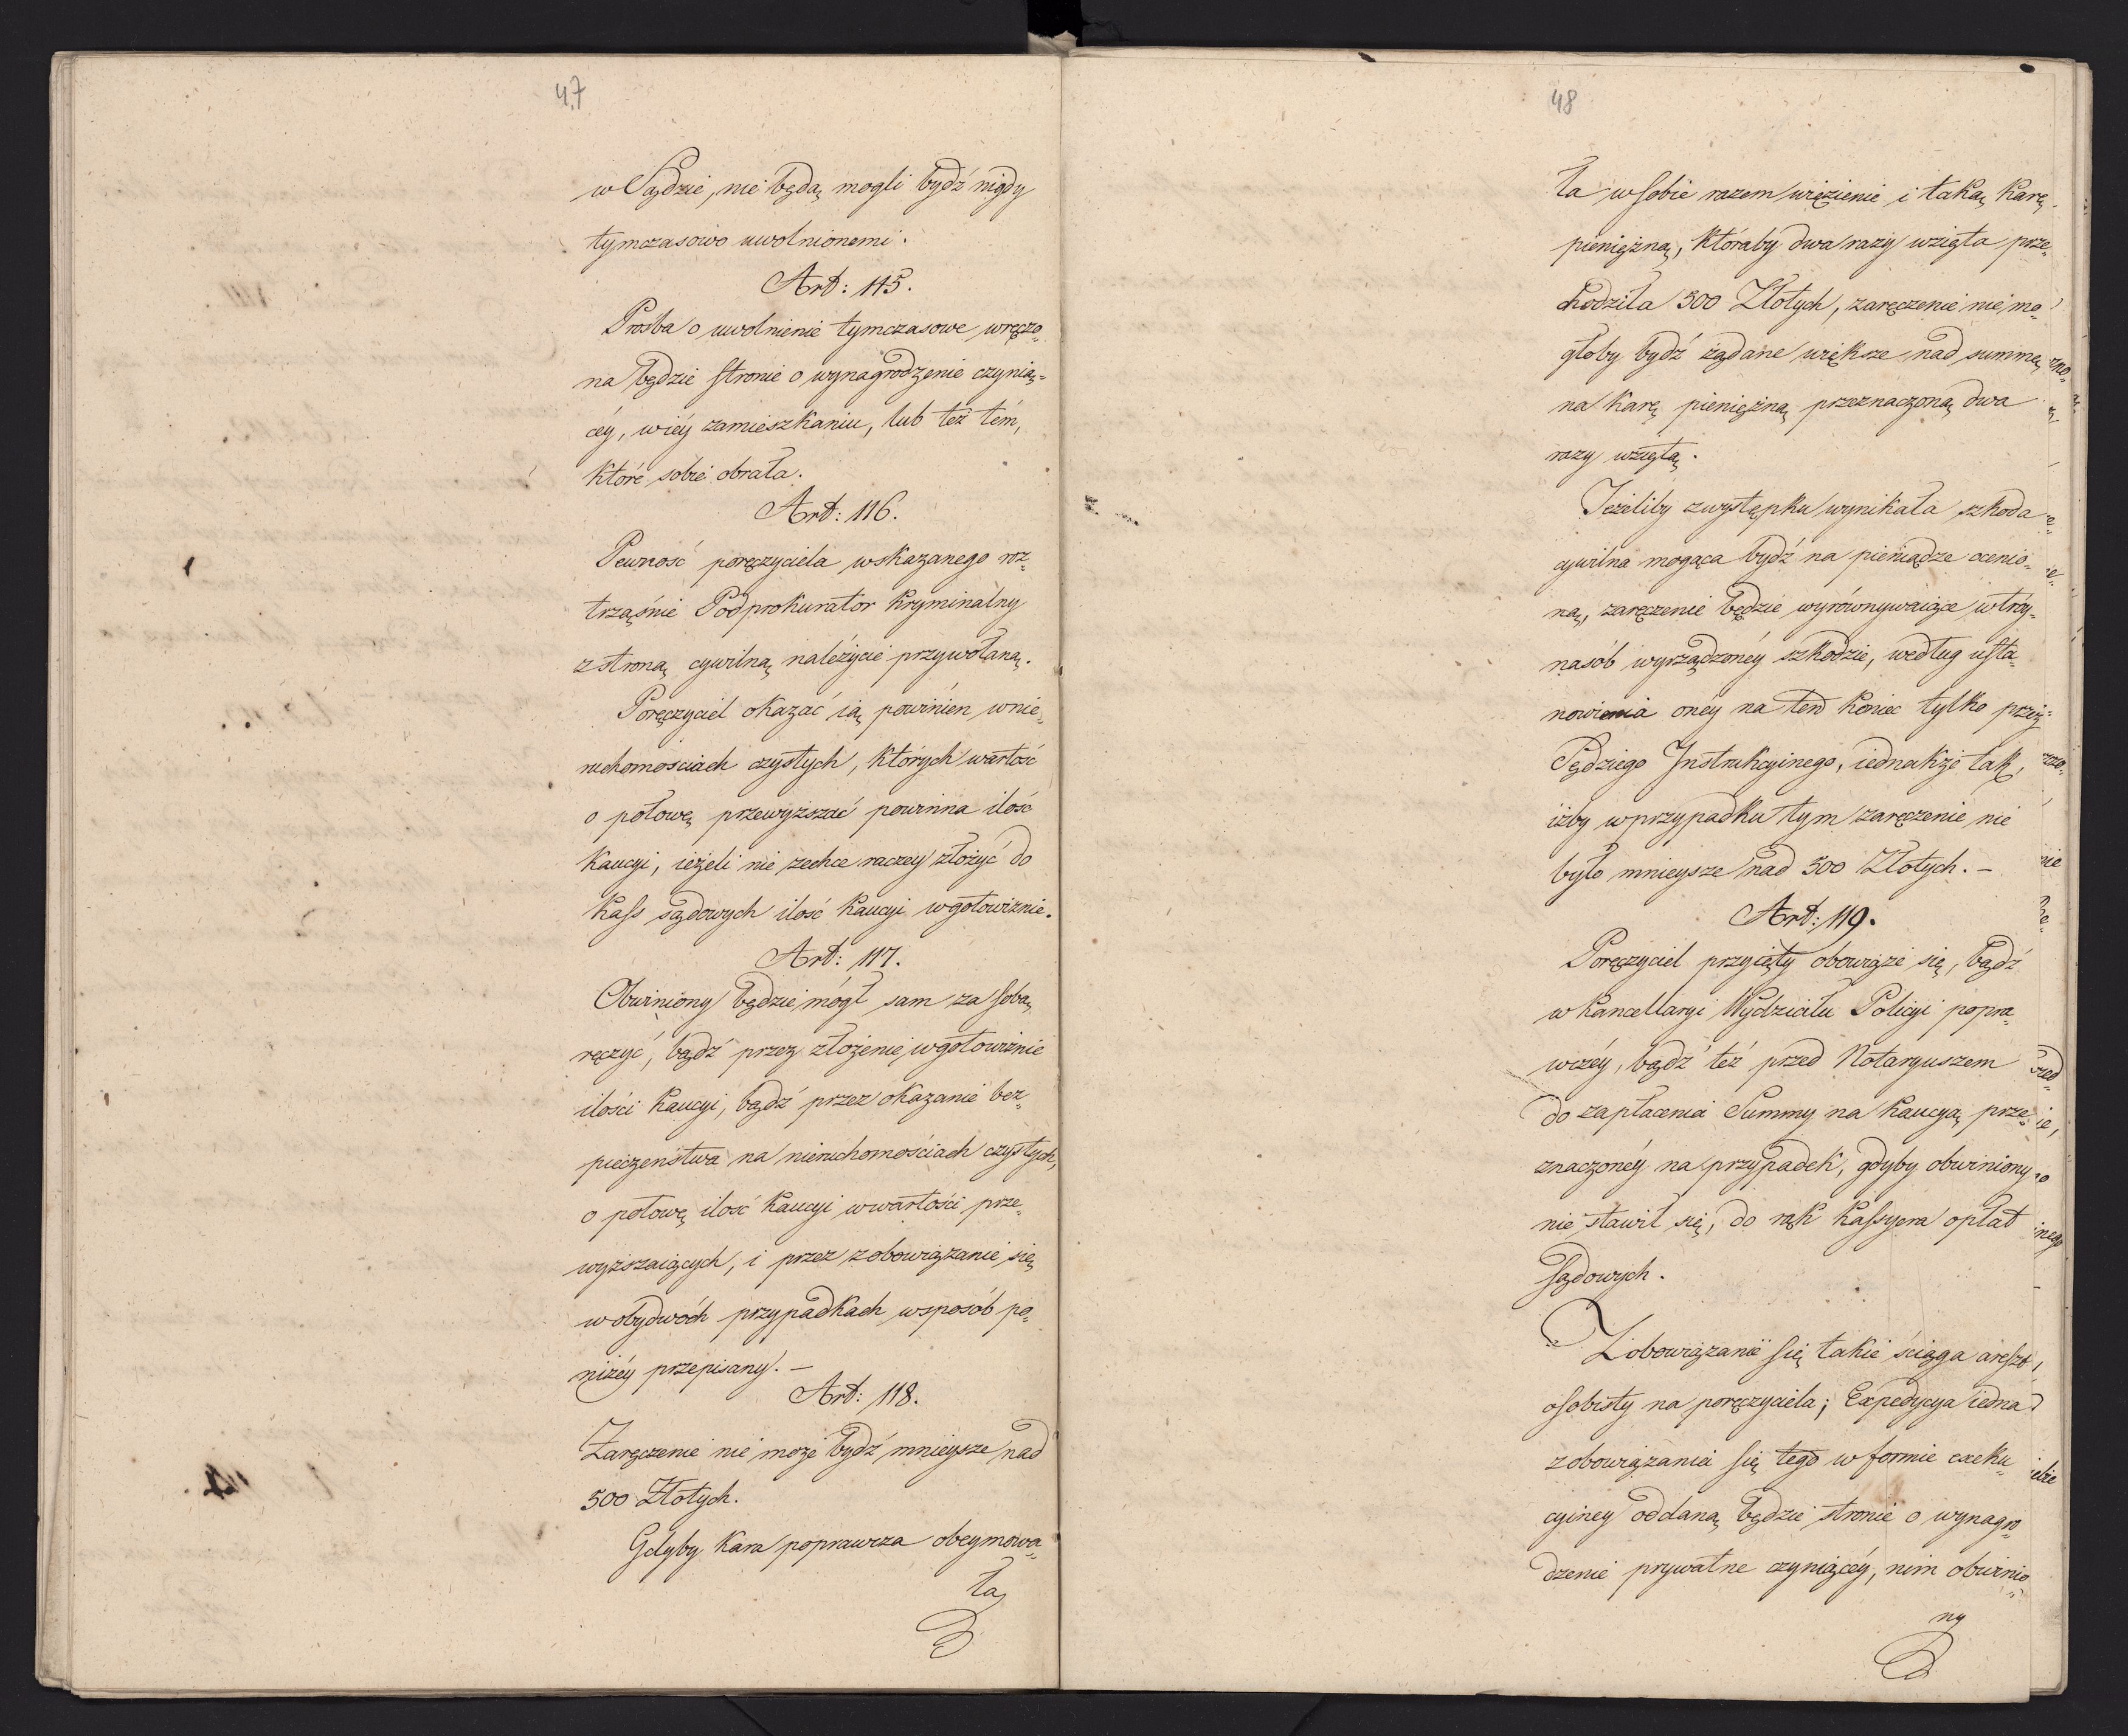 47
w Sądzie, nie będą mogli bydź nigdy
tymczasowo uwolnionemi.
Art: 115.
Prośba o uwolnienie tymczasowe wręczo„
na będzie stronie o wynagrodzenie czynią=
céy, w iéy zamieszkaniu, lub też tém,
które sobie obrała.
Art: 116.
Pewność poręczyciela wskazanego roz„
trząśnie Podprokurator Kryminalny
z stroną cywilną należycie przywołaną.
Poręczyciel okazać ią powinien w nie„
ruchomościach czystych, których wartość
o połowę przewyższać powinna ilość
Kaucyi, ieżeli nie zechce raczey złożyć do
Kass sądowych ilość Kaucyi w gotowiznie.
Art: 117.
Obwiniony będzie mógł sam za sobą
ręczyć, bądź przez złożenie w gotowiznie
ilości Kaucyi, bądź przez okazanie bez„
pieczeństwa na nieruchomościach czystych,
o połowę ilość Kaucyi w wartości prze„
wyższaiących, i przez zobowiązanie się
w obydwóch przypadkach w sposób po„
niżéy przepisany. –
Art: 118.
Zaręczenie nie może bydź mnieysze nad
500 Złotych.
Gdyby Kara poprawcza obeymowa„
ła
48
ła w sobie razem więzienie i taką Karę
pieniężną, któraby dwa razy wzięta prze„
chodziła 500 Złotych, zaręczenie nie mo„
głoby bydź żądane większe nad summę
na Karę pieniężną przeznaczoną dwa
razy wziętą.
Jeżeliby z występku wynikała szkoda
cywilna mogąca bydź na pieniądze ocenio„
ną, zaręczenie będzie wyrównywaiące w tróy„
nasób wyrządzonéy szkodzie, według usta„
nowienia onéy na ten koniec tylko przez
Sędziego Instrukcyinego, iednakże tak,
iżby w przypadku tym zaręczenie nie
było mnieysze nad 500 Złotych. –
Art: 119.
Poręczyciel przyięty obowiąże się, bądź
w Kancellaryi Wydziału Policyi popra„
wczéy, bądź też przed Notaryuszem
do zapłacenia Summy na Kaucyą prze„
znaczonéy na przypadek, gdyby obwiniony
nie stawił się, do rąk Kassyera opłat
sądowych.
Zobowiązanie się takie ściąga areszt
osobisty na poręczyciela; Expedycya iedna
zobowiązania się tego w formie exeku„
cyiney oddaną będzie stronie o wynagro„
dzenie prywatne czyniącéy, nim obwinio„
ny